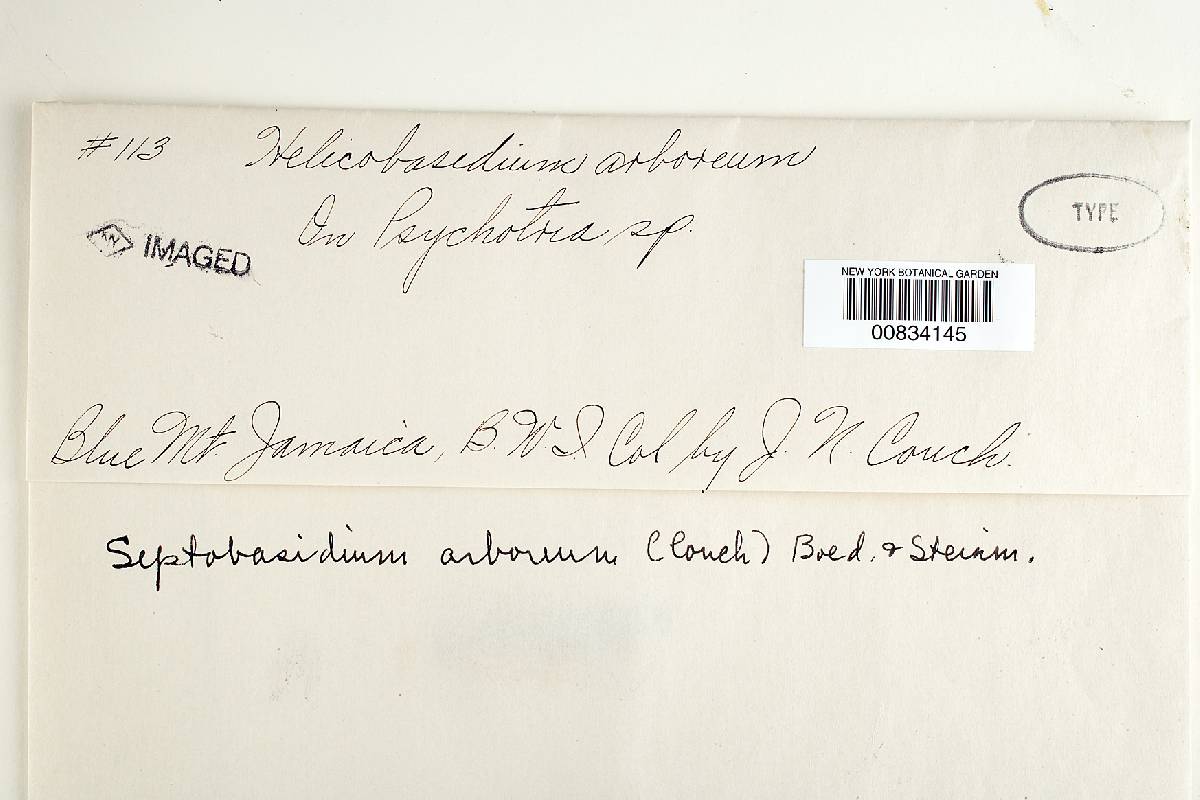 #113 Helicobasidium arboreum
On Psychotria sp.
TYPE
AN IMAGED
NEW YORK BOTANICAL GARDEN
00834145
Blue Mt. Jamaica, B.W.I. Col by J. N. Couch.
Septobasidium arboreum (Couch) Boed. & Steinm.